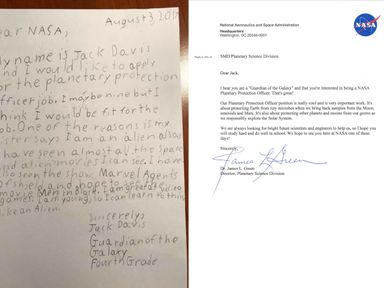 August 3, 201
ear NASA,
My name is Jack Davis
and I would like to apply
for the planetary protection
officer job. I may be nine but I
think I would be fit for the
job. One of the reasons is my
sister says I am an alien also
I have seen almost all the space
and alien movies I can see. I have
also seen the show Marvel Agents
of Shield and hope to see the
movie Men in Black. I am great at video
games. I am young, so I can learn to think
like an Alien.
Sincerely,
Jack Davis
Guardian of the
Galaxy
Fourth Grade
National Aeronautics and Space Administration
Headquarters
Washington, DC 20546-0001
NASA
SMD Planetary Science Division
Dear Jack,
I hear you are a "Guardian of the Galaxy" and that you're interested in being a NASA
Planetary Protection Officer. That's great!
Our Planetary Protection Officer position is really cool and is very important work. It's
about protecting Earth from tiny microbes when we bring back samples from the Moon,
asteroids and Mars. It's also about protecting other planets and moons from our germs as
we responsibly explore the Solar System.
We are always looking for bright future scientists and engineers to help us, so I hope you
will study hard and do well in school. We hope to see you here at NASA one of these
days!
Sincerely,
James L Green
Dr. James L. Green
Director, Planetary Science Division